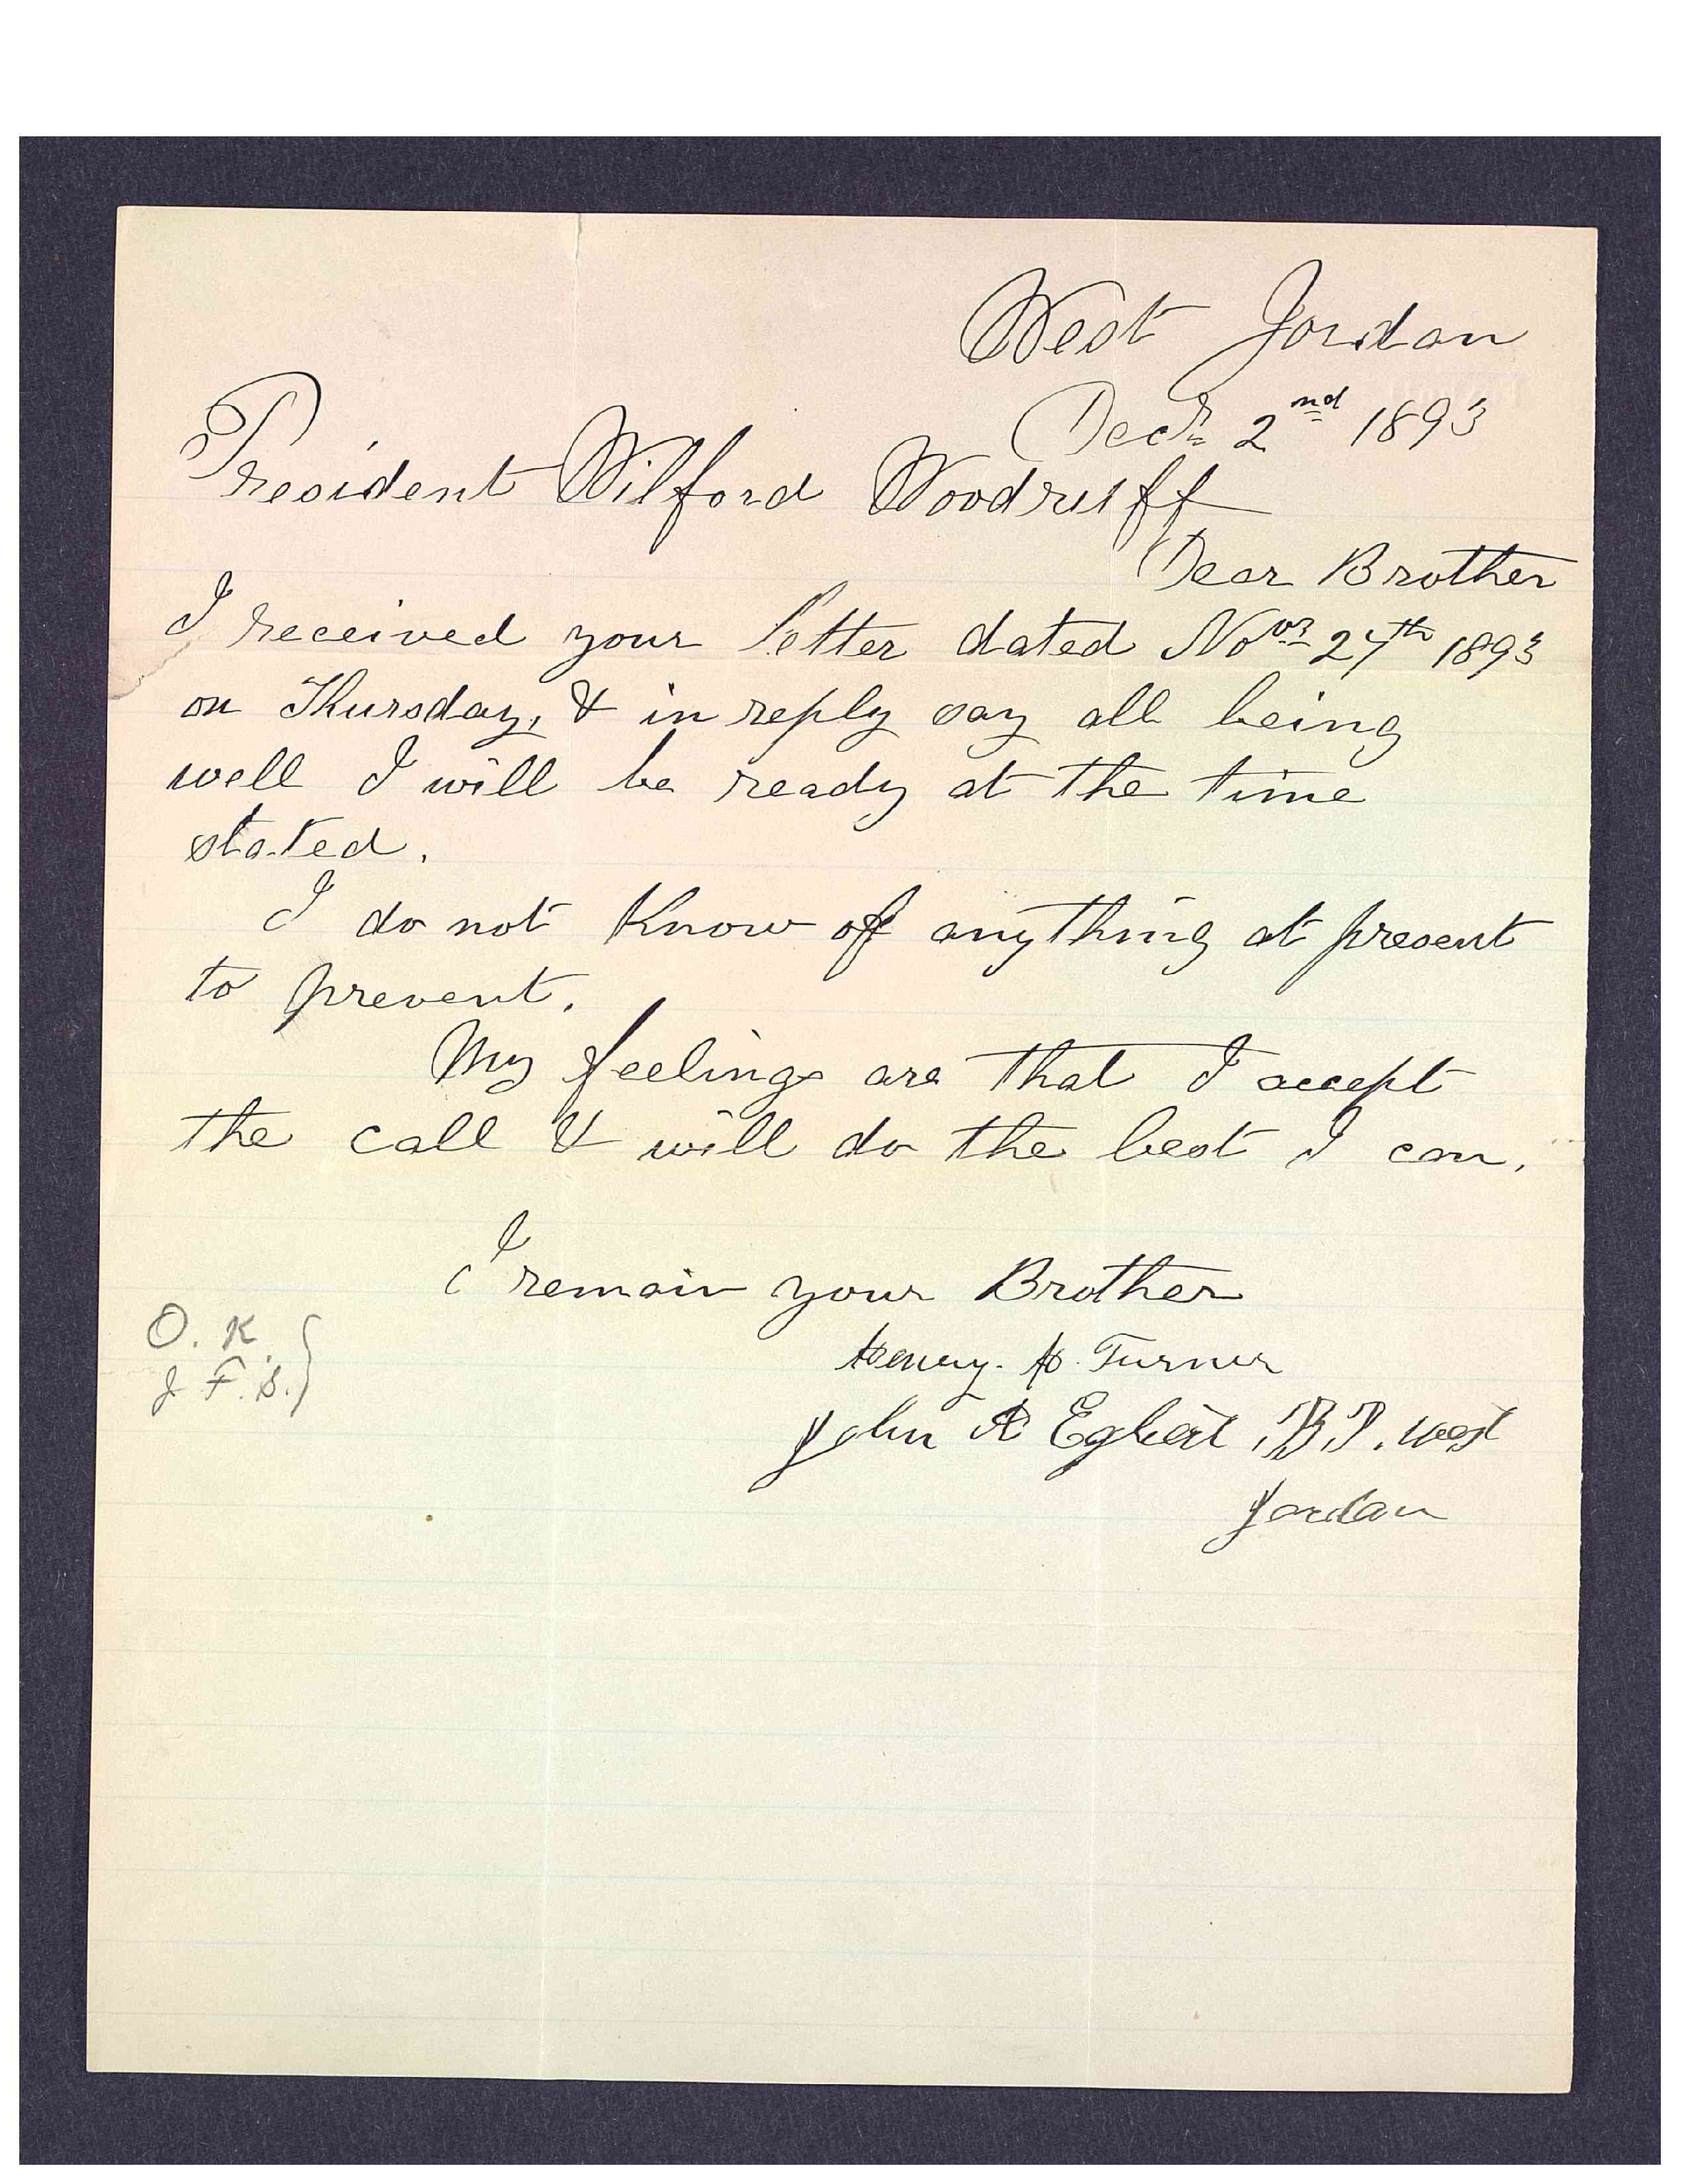 West Jordan
Decr 2nd 1893
President Wilford Woodruff
Dear Brother
I received your letter dated Novr 27th 1893
on Thursday, & in reply say all being
well I will be ready at the time
stated.
I do not Know of anything at present
to prevent.
My feelings are that I accept
the call & will do the best I can.
I remain your Brother
Henry. H. Turner
John A Egbert, BP. West
Jordan
O. K.
J. F. S.